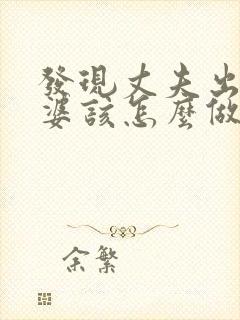 發現丈夫出
婆該怎麼做
余繁